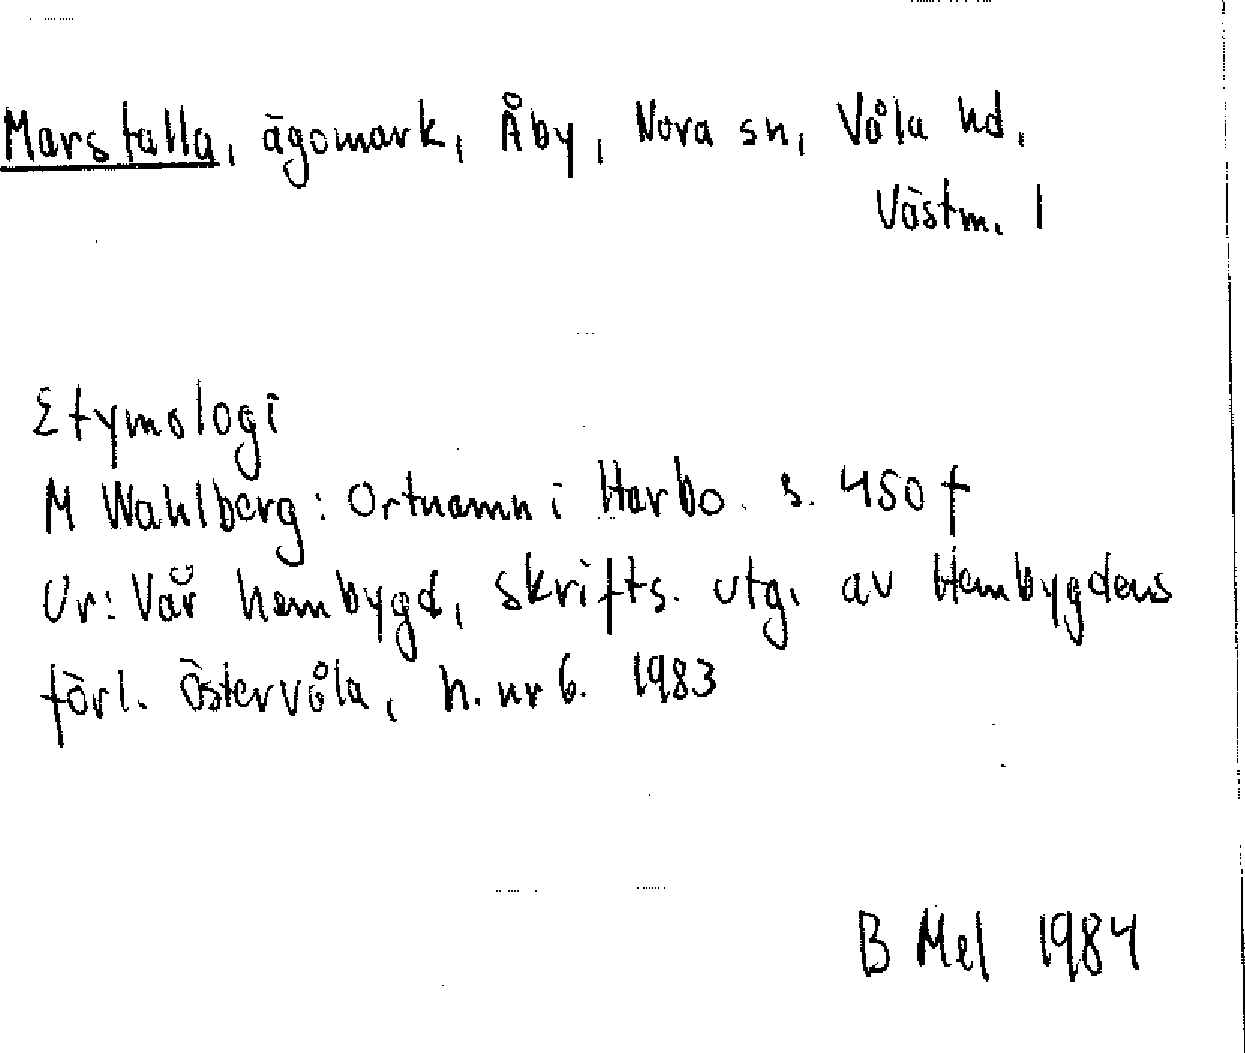 Marstalla, ägomark, Åby, Nora sn, Våla hd,
Västm. l
Etymologi
M Wahlberg: Ortnamn i Harbo s. 450 f
Ur: Vår hembygd, skrifts. utg. av Hembygdens
förl. Östervåla, h. nr 6. 1983
B Mel 1984